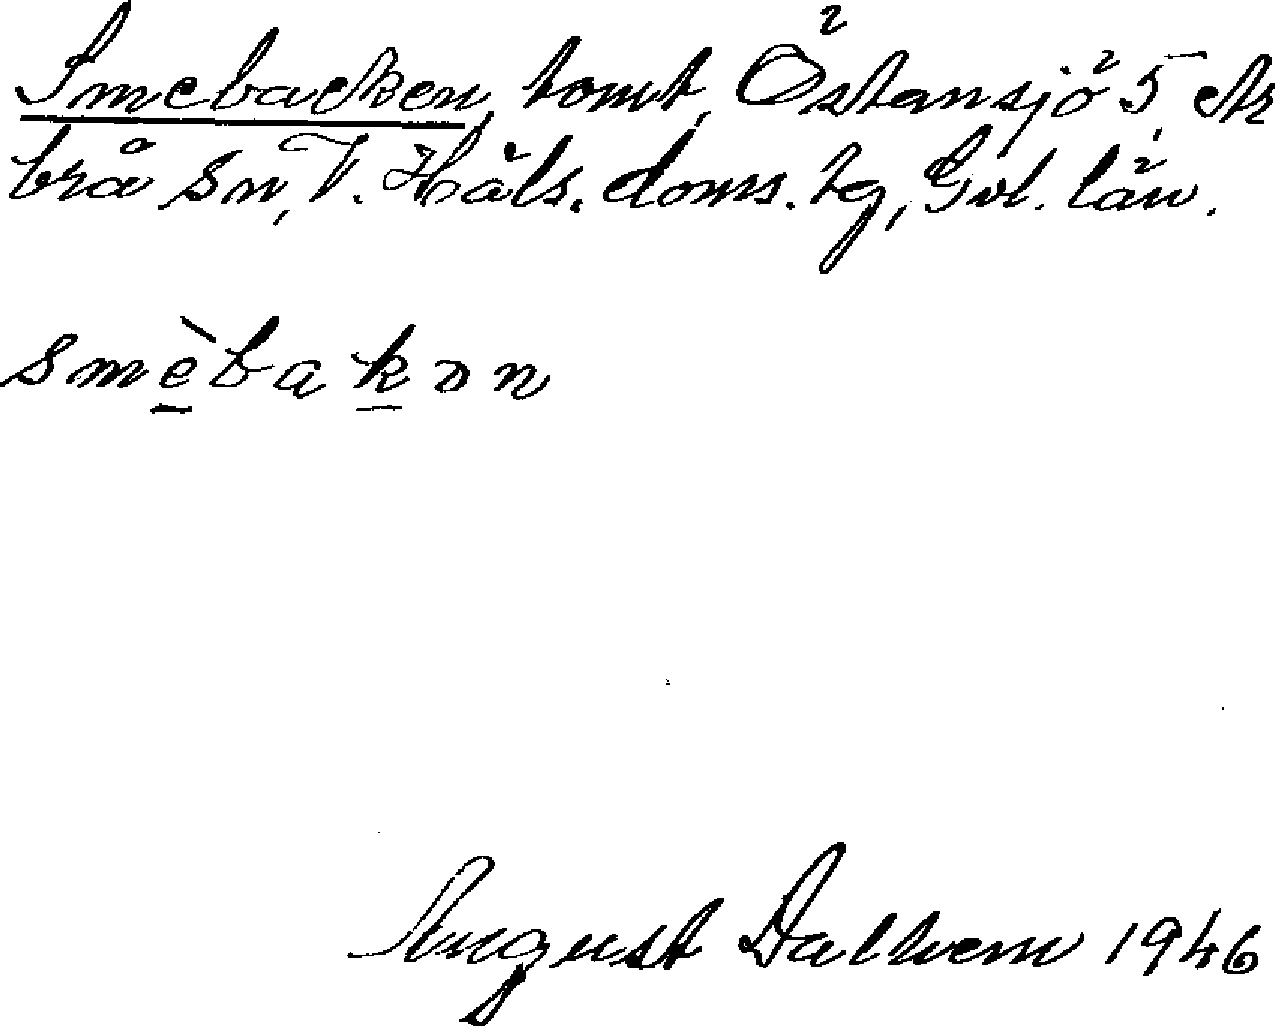 Smebacken, tomt, Östansjö 5, Ar
brå sn, V. Häls. doms. tg, Gvl. län.
smèbakən
August Dalhem 1946